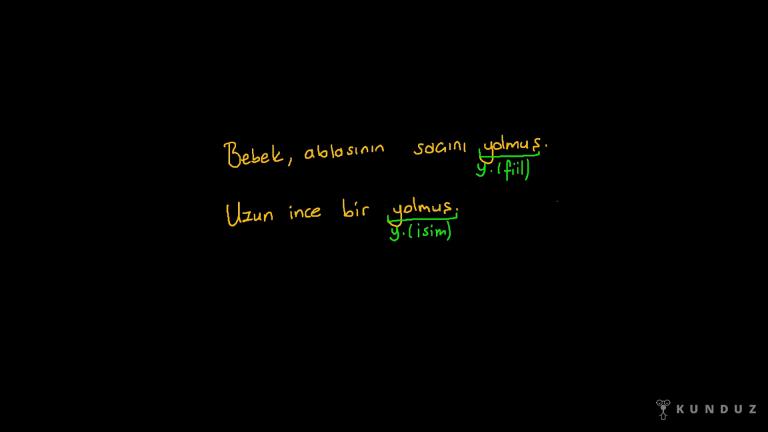 Bebek, ablasının saçını yolmuş.
y.(fiil)
Uzun ince bir yolmuş.
y.(isim)
KUNDUZ